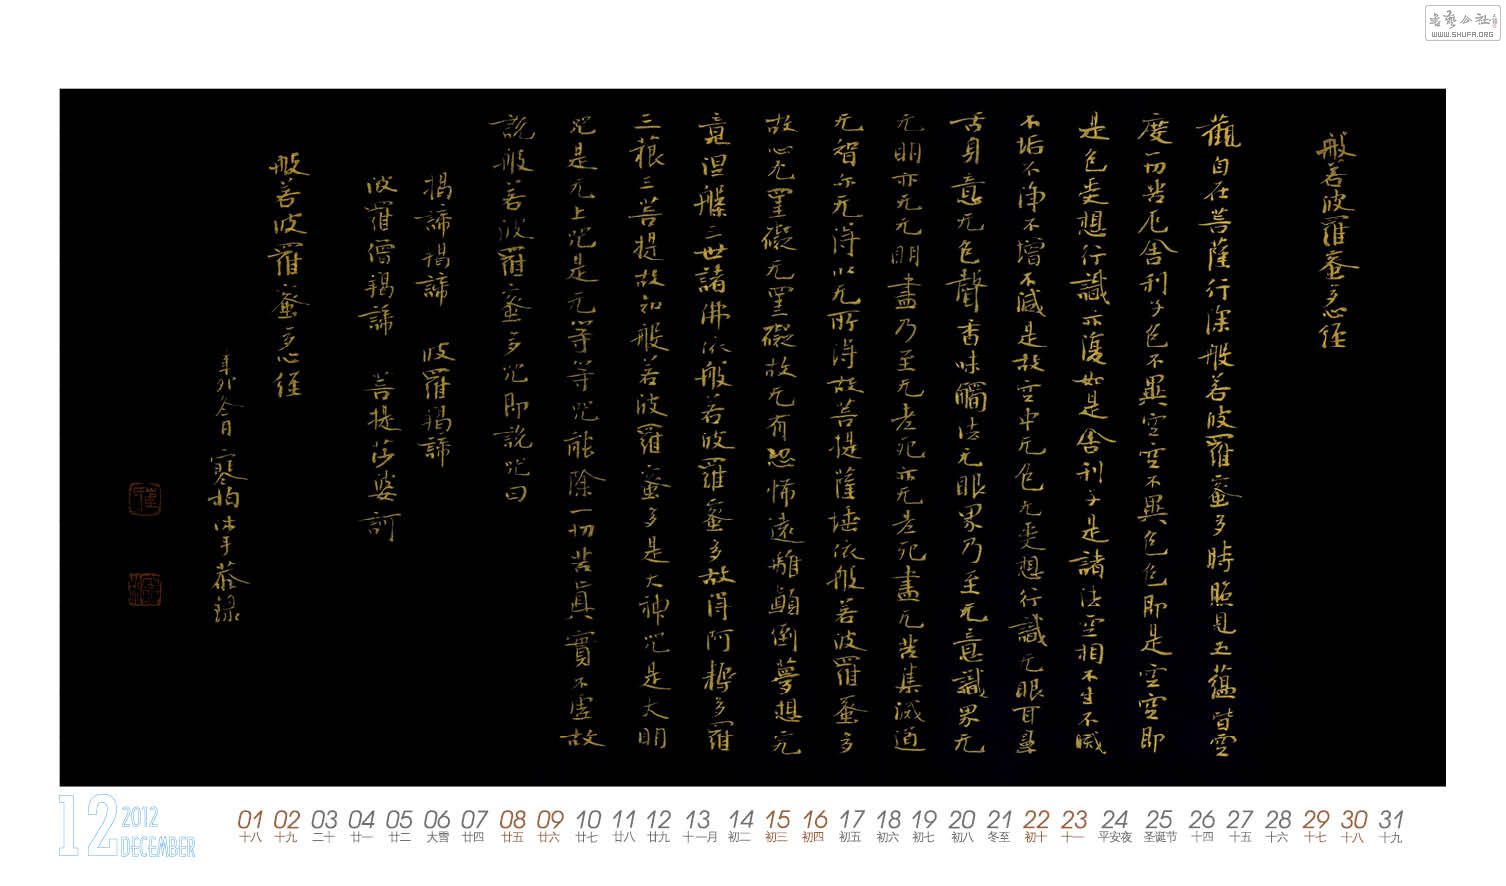 般若波羅蜜多心经
觀自在菩薩行深般若波羅蜜多時照見五蘊皆空
度一切苦厄舍利子色不異空空不異色色即是空空即
是色受想行識亦復如是舍利子是諸法空相不生不滅
不垢不净不增不减是故空中无色无受想行識无眼耳鼻
舌身意无色聲香味觸法无眼界乃至无意識界无
无明亦无无明盡乃至无老死亦无老死盡无苦集滅道
无智亦无得以无所得故菩提薩埵依般若波羅蜜多
故心无罣礙无罣礙故无有恐怖遠離顛倒夢想究
竟涅槃三世諸佛依般若波羅蜜多故得阿耨多羅
三藐三菩提故知般若波羅蜜多是大神咒是大明
咒是无上咒是无等等咒能除一切苦真實不虚故
説般若波羅蜜多咒即説咒曰
揭諦揭諦 波羅揭諦
波羅僧揭諦 菩提莎婆訶
般若波羅蜜多心经
辛卯冬月
WWW.SHUFA.ORG
12 2012 DECEMBER
01 02 03 04 05 06 07 08 09 10 11 12 13 14 15 16 17 18 19 20 21 22 23 24 25 26 27 28 29 30 31
十八 十九 二十 廿一 廿二 大雪 廿四 廿五 廿六 廿七 廿八 廿九 十一月 初二 初三 初四 初五 初六 初七 初八 冬至 初十 十一 平安夜 圣诞节 十四 十五 十六 十七 十八 十九